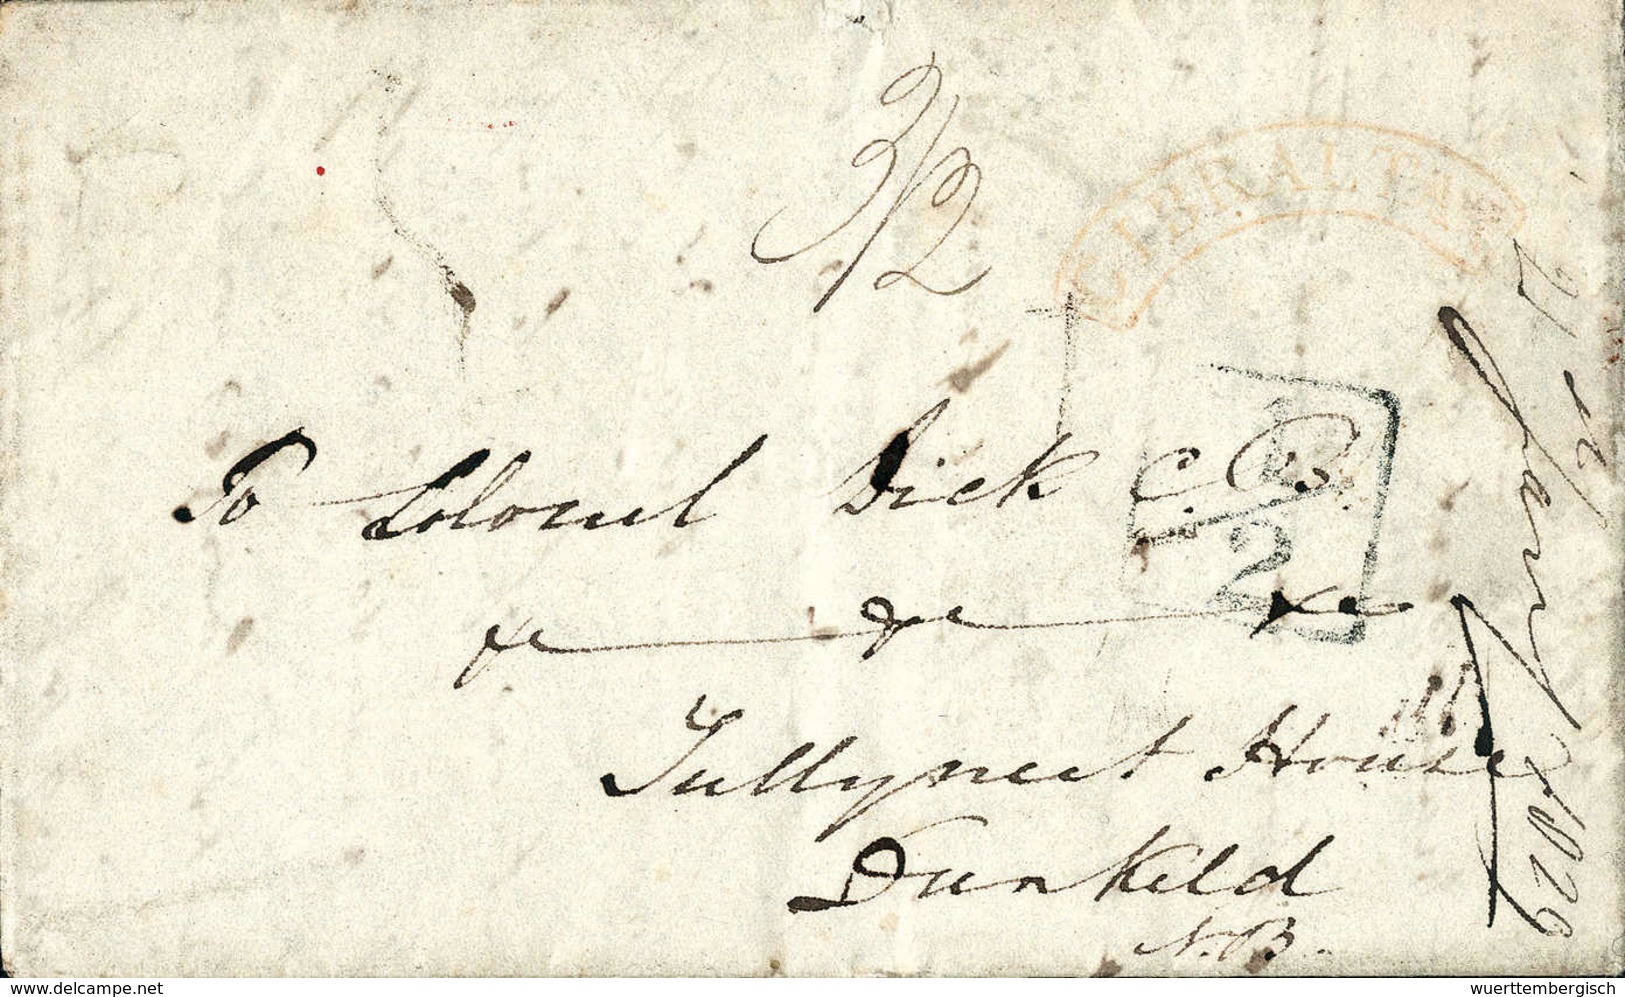 3/2
GIBRALTAR
To Colonel Dick C.B.
&c &c &c
Tullymet House
Dunkeld
N.B.
1/2
Jany 1829
delcampe.net
wuerttembergisch